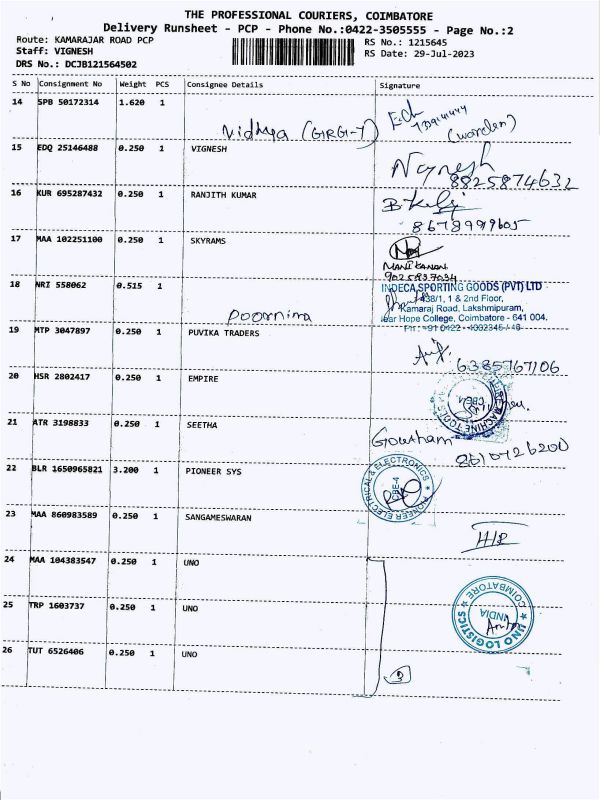 THE PROFESSIONAL COURIERS, COIMBATORE
Delivery Runsheet - PCP - Phone No.:0422-3505555 - Page No.:2
Route: KAMARAJAR ROAD PCP RS No.: 1215645
Staff: VIGNESH RS Date: 29-Jul-2023
DRS No.: DCJB121564502
S No Consignment No Weight PCS Consignee Details Signature
14 SPB 50172314 1.620 1
Vidhya (GIRGI-7) (warden)
15 EDQ 25146488 0.250 1 VIGNESH
8825874632
16 KUR 695287432 0.250 1 RANJITH KUMAR
17 MAA 102251100 0.250 1 SKYRAMS
MANIKANDAN
9025837034
18 NRI 558062 0.515 1 INDECA SPORTING GOODS (PVT) LTD
438/1, 1 & 2nd Floor,
Kamaraj Road, Lakshmipuram,
Near Hope College, Coimbatore - 641 004.
Poornima
19 MTP 3047897 0.250 1 PUVIKA TRADERS
6385767106
20 HSR 2802417 0.250 1 EMPIRE
MACHINE TOOLS
21 ATR 3198833 0.250 1 SEETHA
Goutham
8610726200
22 BLR 1650965821 3.200 1 PIONEER SYS
PIONEER ELECTRICAL & ELECTRONICS
CBE-4
23 MAA 860983589 0.250 1 SANGAMESWARAN
24 MAA 104383547 0.250 1 UNO
25 TRP 1603737 0.250 1 UNO
UNO LOGISTICS COIMBATORE
INDIA
26 TUT 6526406 0.250 1 UNO
3